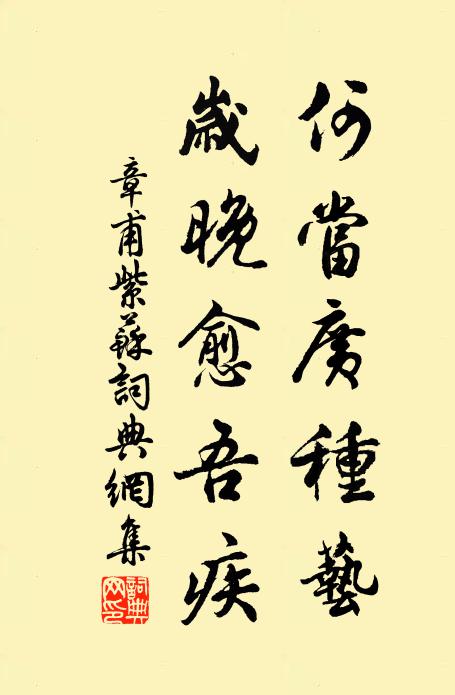 何當廣種藝
歲晚愈吾疾
章甫紫蘇詞典網集
詞典网印